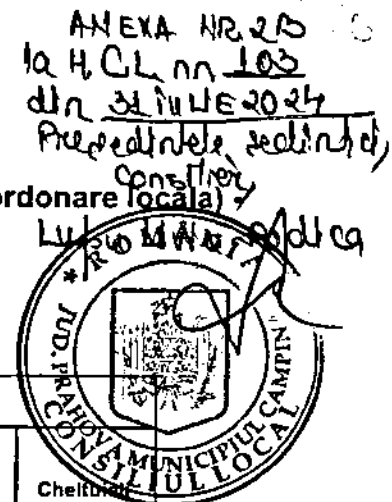 ANEXA NR. 2B
la H.C.L. nr. 103
din 31 iulie 2024
Președintele ședinței,
Consilier,
ordonare locala)
* ROMANIA *
JUD. PRAHOVA MUNICIPIUL CAMPIN
CONSILIUL LOCAL